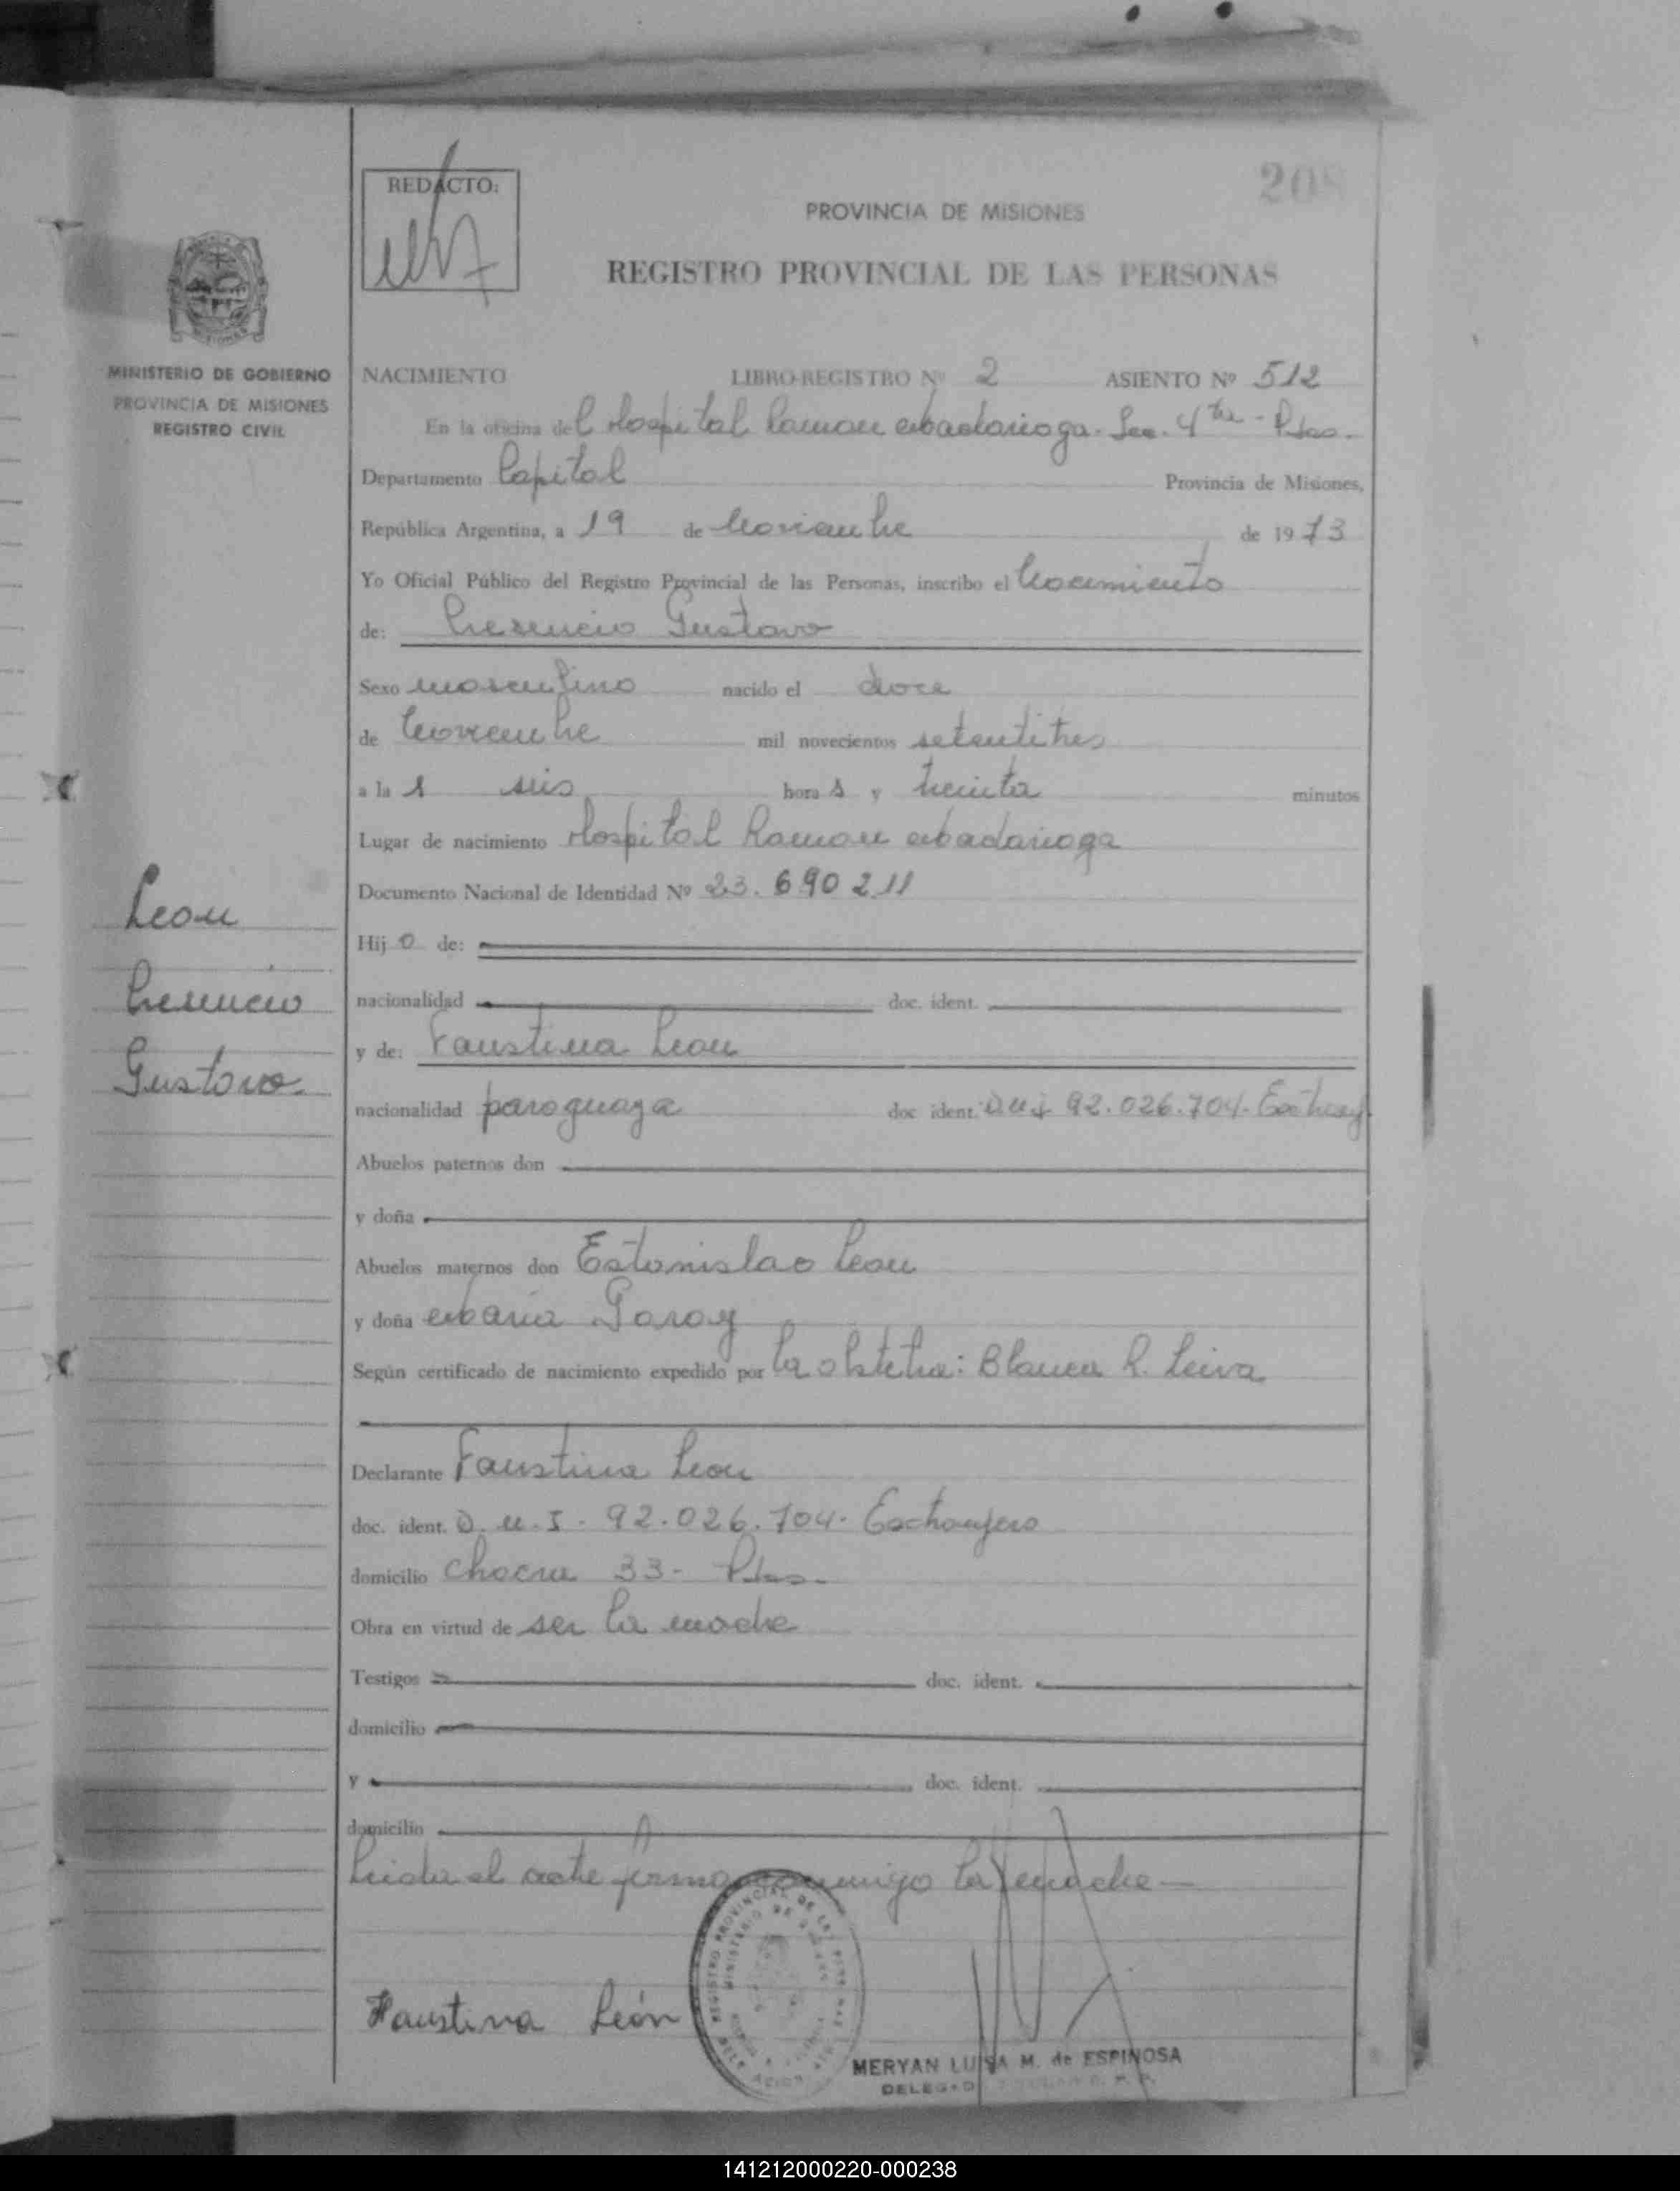 208
REDACTO:
PROVINCIA DE MISIONES
REGISTRO PROVINCIAL DE LAS PERSONAS
MINISTERIO DE GOBIERNO
PROVINCIA DE MISIONES
REGISTRO CIVIL
NACIMIENTO LIBRO-REGISTRO Nº 2 ASIENTO Nº 512
En la oficina del Hospital Ramon Madariaga. Sec. 4ta - Pdas.
Departamento Capital Provincia de Misiones,
República Argentina, a 19 de Noviembre de 1973
Yo Oficial Público del Registro Provincial de las Personas, inscribo el Nacimiento
de: Gustavo
Sexo masculino nacido el doce
de Noviembre mil novecientos setentitres
a las seis horas y treinta minutos
Lugar de nacimiento Hospital Ramon Madariaga
Documento Nacional de Identidad Nº 23.690211
Leon
Hijo de:
nacionalidad doc. ident.
Gustavo
y de: Faustina Leon
nacionalidad paraguaya doc. ident. D.N.I 92.026.704.
Abuelos paternos don
y doña
Abuelos maternos don Estanislao Leon
y doña Maria Garay
Según certificado de nacimiento expedido por la obstetra: Blanca R. Leiva
Declarante Faustina Leon
doc. ident. D.N.I. 92.026.704. Extranjero
domicilio Chacra 33- Pdas.
Obra en virtud de ser la madre
Testigos doc. ident.
domicilio
y doc. ident.
domicilio
Leida el acta firma conmigo la madre
Faustina León
REGISTRO PROVINCIAL DE LAS PERSONAS
MINISTERIO DE GOBIERNO
MERYAN LUISA M. de ESPINOSA
141212000220-000238